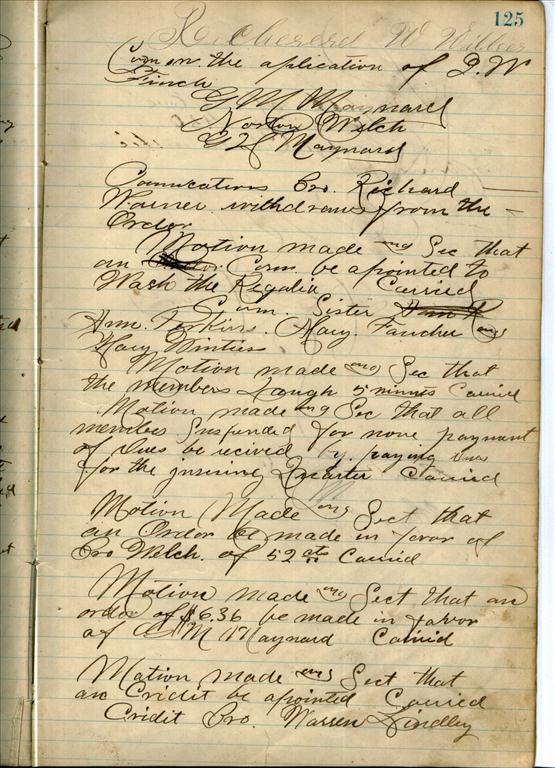 125
Com on the aplication of D. W
Finch
G M Maynard
Norton Welch
G L Maynard
Comucations Bro. Richard
Warner withdraws from the
Order
Motion made and Sec that
an Com be apointed to
Wash the Regalia Carried
Com. Sister
Ann. Perkins. Mary. Faucher and
Mary Winters
Motion made and Sec that
the members Laugh 5 minuts Carried
Motion made and Sec that all
members Suspended for none paymant
of Dues be recived by paying Dues
for the insuing Quarter Carried
Motion Made and Sect that
an Order be made in favor of
Bro Welch. of 52 cts Carried
Motion made and Sect that an
order of $6.36 be made in favor
of G M Maynard Carried
Motion made and Sect that
an Cridit be apointed Carried
Cridit Bro. Warren Lindley